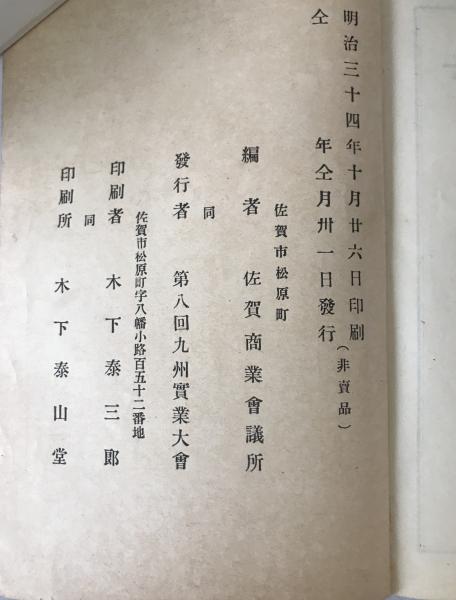 明治三十四年十月廿六日印刷
仝年仝月卅一日發行
(非賣品)
佐賀市松原町
編者 佐賀商業會議所
同
發行者 第八回九州實業大會
佐賀市松原町字八幡小路百五十二番地
印刷者 木下泰三郎
同
印刷所 木下泰山堂